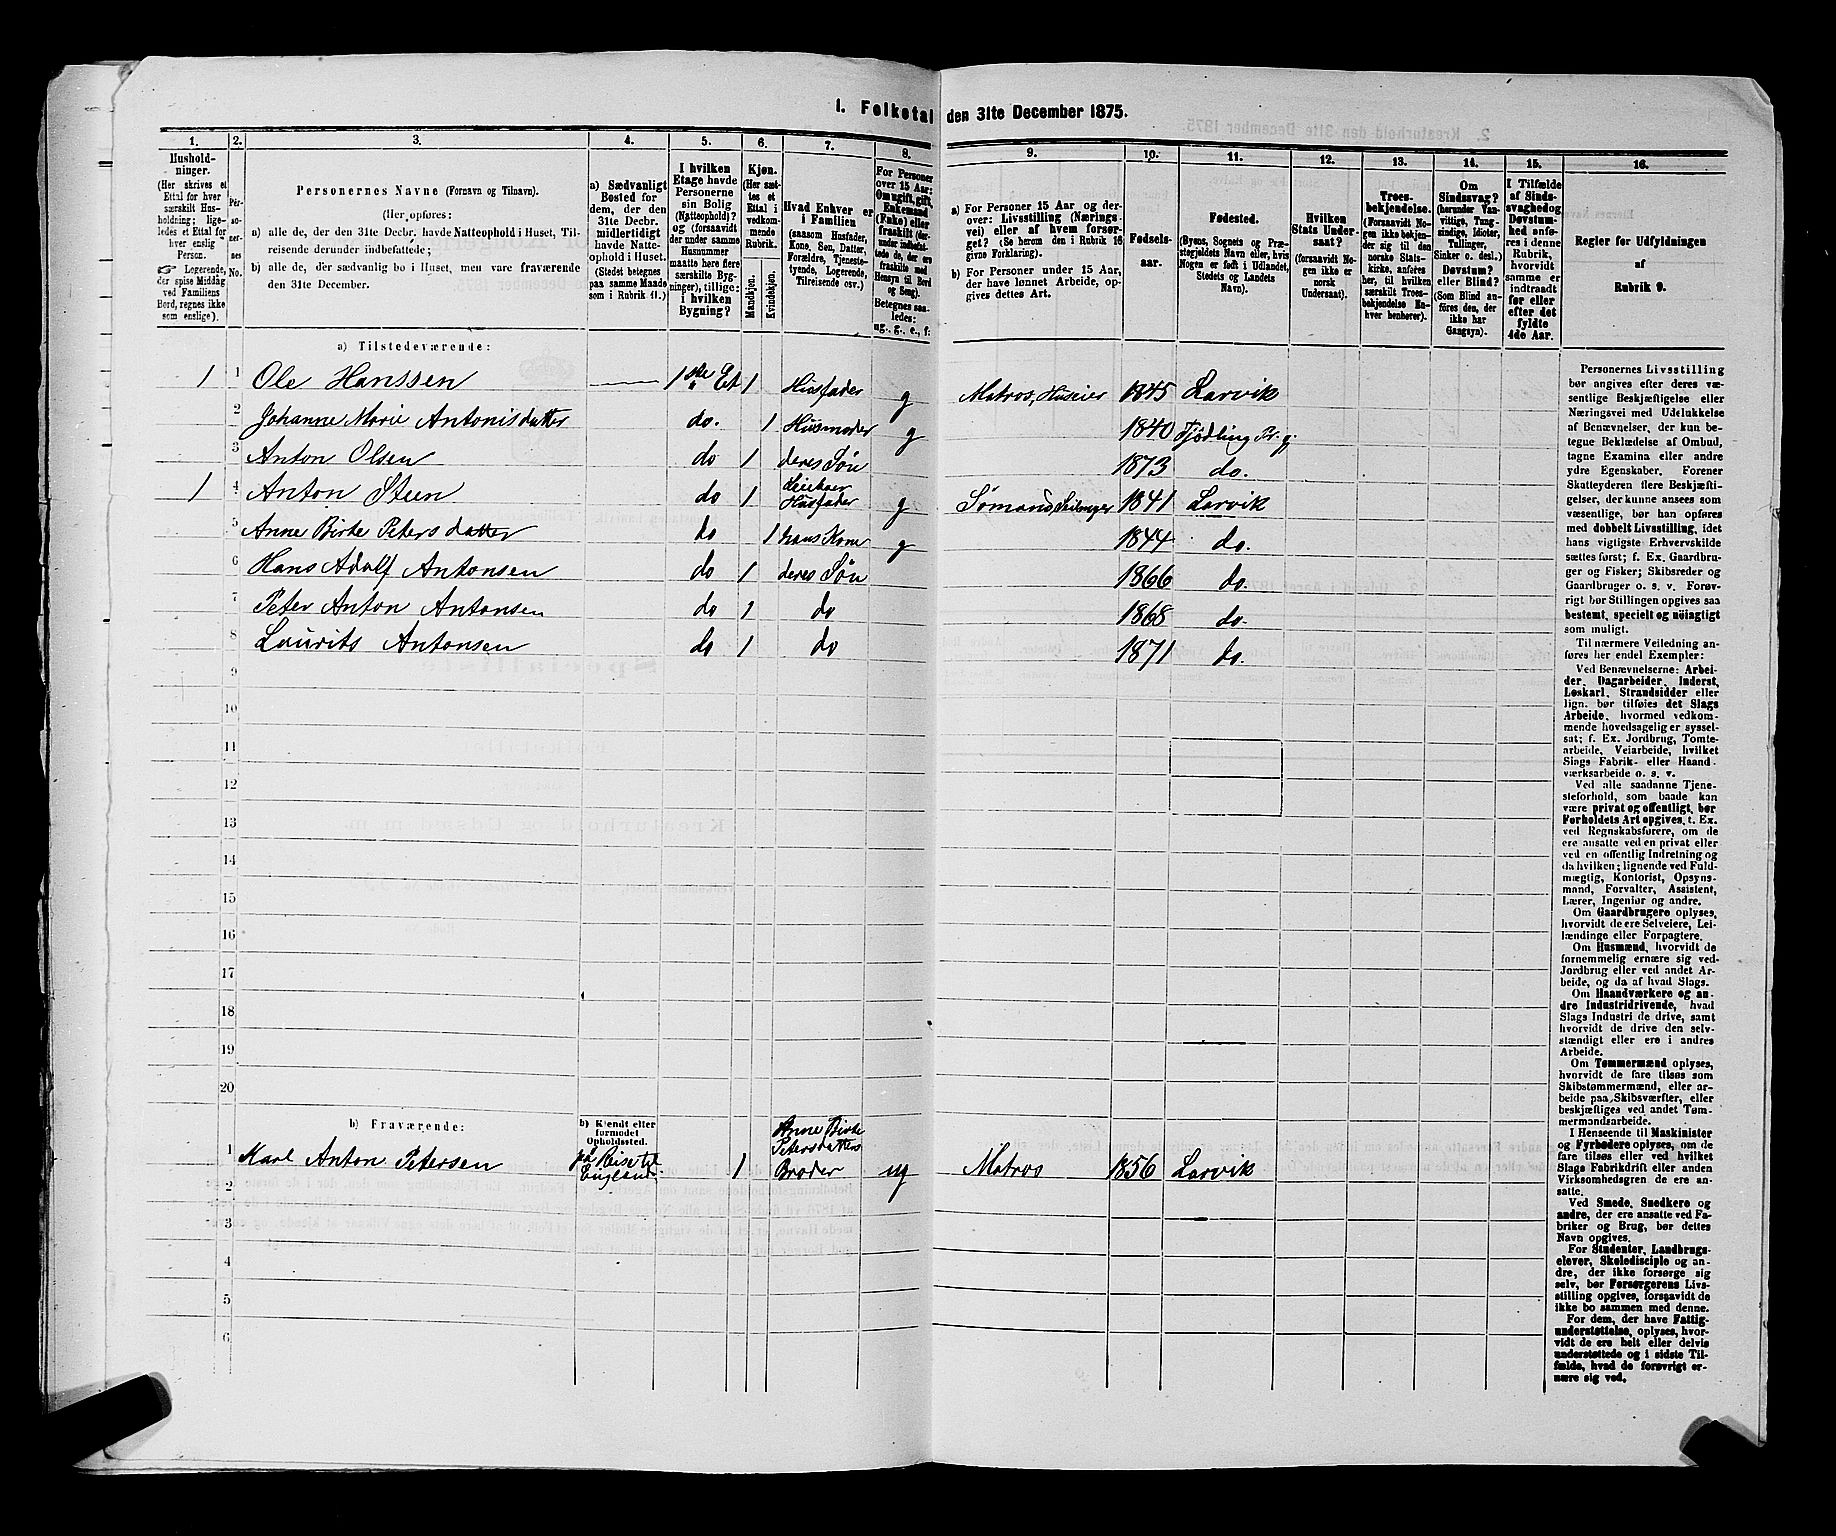 1. Folketal den 31te December 1875.
1. 2. 3. 4. 5. 6. 7. 8. 9. 10. 11. 12. 13. 14. 15. 16.
Hushold-
ninger.
(Her skrives et
Ettal for hver
særskilt Hus-
holdning; lige-
ledes et Ettal for
hver enslig
Person.
☞ Logerende,
der spise Middag
ved Familiens
Bord, regnes ikke
som enslige).
Per-
so-
ner-
nes
No.
Personernes Navne (Fornavn og Tilnavn).
(Her opføres:
a) alle de, der den 31te Decbr. havde Natteophold i Huset, Til-
reisende derunder indbefattede;
b) alle de, der sædvanlig bo i Huset, men vare fraværende
den 31te December.
a) Sædvanligt
Bosted for
dem, der den
31te Decbr.
midlertidigt
havde Natte-
ophold i Huset.
(Stedet betegnes
paa samme Maade
som i Rubrik 11.)
I hvilken
Etage havde
Personerne
sin Bolig
(Natteophold)?
og (forsaavidt
der under samme
Husnummer
maatte høre flere
særskilte Byg-
ninger), tillige:
i hvilken
Bygning?
Kjøn.
(Her sæt-
tes et
Ettal i
vedkom-
mende
Rubrik.
Mandkjøn.
Kvindekjøn.
Hvad Enhver er
i Familien
(saasom Husfader,
Kone, Søn, Datter,
Forældre, Tjeneste-
tyende, Logerende,
Tilreisende osv.)
For Personer
over 15 Aar:
Om ugift, gift,
Enkemand
(Enke) eller
fraskilt (der-
under indbefat-
tede de, der ere
fraskilte med
Hensyn til Bord
og Seng).
Betegnes saa-
ledes:
ug., g., e., f.
a) For Personer 15 Aar og der-
over: Livsstilling (Nærings-
vei) eller af hvem forsør-
get? (Se herom den i Rubrik 16
givne Forklaring).
b) For Personer under 15 Aar,
der have lønnet Arbeide, op-
gives dettes Art.
Fødsels-
aar.
Fødested.
(Byens, Sognets og Præ-
stegjeldets Navn eller, hvis
Nogen er født i Udlandet,
Stedets og Landets
Navn).
Hvilken
Stats Under-
saat?
(forsaavidt No-
gen ikke er
norsk
Undersaat).
Troes-
bekjendelse.
(Forsaavidt No-
gen ikke bekjen-
der sig til den
norske Stats-
kirke, anføres
her, til hvilken
særskilt Troes-
bekjendelse En-
hver henhører).
Om
Sindssvag?
(herunder Van-
vittige, Tung-
sindige, Idioter,
Tullinger,
Sinker o. desl.)
Døvstum?
eller Blind?
(Som Blind an-
føres den, der
ikke har
Gangsyn).
I Tilfælde
af Sinds-
svaghed og
Døvstum-
hed anfø-
res i denne
Rubrik,
hvorvidt
samme er
indtraadt
før eller
efter det
fyldte
4de Aar.
Regler for Udfyldningen
af
Rubrik 9.
a) Tilstedeværende:
1 1 Ole Hanssen — 1ste Et 1 Husfader g Matros, Huseier 1845 Larvik
2 Johanne Marie Antonisdatter do. 1 Husmoder g 1840 Tjødling Pr. g.
3 Anton Olsen do 1 deres Søn 1873 do.
1 4 Anton Steen do 1 Leieboer Husfader g Sømand 1841 Larvik
5 Anne Birte Petersdatter do 1 hans Kone g 1844 do.
6 Hans Adolf Antonsen do 1 deres Søn 1866 do.
7 Peter Anton Antonsen do 1 do 1868 do.
8 Laurits Antonsen do 1 do 1871 do.
9
10
11
12
13
14
15
16
17
18
19
20
b) Fraværende:
b) Kjendt eller
formodet
Opholdssted.
1 Karl Anton Petersen på Reise til England. 1 Anne Birte Petersdatters Broder ug Matros 1856 Larvik
2
3
4
5
6
Personernes Livsstilling
bør angives efter deres væ-
sentlige Beskjæftigelse eller
Næringsvei med Udelukkelse
af Benævnelser, der kun be-
tegne Beklædelse af Ombud,
tagne Examina eller andre
ydre Egenskaber. Forener
Skatteyderen flere Beskjæfti-
gelser, der kunne ansees som
væsentlige, bør han opføres
med dobbelt Livsstilling, idet
hans vigtigste Erhvervskilde
sættes først; f. Ex. Gaardbru-
ger og Fisker; Skibsreder og
Gaardbruger o. s. v. Forøv-
rigt bør Stillingen opgives saa
bestemt, specielt og nøiagtigt
som muligt.
Til nærmere Veiledning an-
føres her endel Exempler:
Ved Benævnelserne: Arbei-
der, Dagarbeider, Inderst,
Løskarl, Strandsidder eller
lign. bør tilføies det Slags
Arbeide, hvormed vedkom-
mende hovedsagelig er syssel-
sat; f. Ex. Jordbrug, Tomte-
arbeide, Veiarbeide, hvilket
Slags Fabrik- eller Haand-
værksarbeide o. s. v.
Ved alle saadanne Tjene-
steforhold, som baade kan
være privat og offentligt, bør
Forholdets Art opgives, t. Ex.
ved Regnskabsførere, om de
ere ansatte ved en privat eller
ved en offentlig Indretning og
da hvilken; lignende ved Fuld-
mægtig, Kontorist, Opsyns-
mand, Forvalter, Assistent,
Lærer, Ingeniør og andre.
Om Gaardbrugere oplyses,
hvorvidt de ere Selveiere, Lei-
lændinge eller Forpagtere.
Om Husmænd, hvorvidt de
fornemmelig ernære sig ved
Jordbrug eller ved andet Ar-
beide, og da af hvad Slags.
Om Haandværkere og an-
dre Industridrivende, hvad
Slags Industri de drive, samt
hvorvidt de drive den selv-
stændigt eller ere i andres
Arbeide.
Om Tømmermænd oplyses,
hvorvidt de fare tilsøs som
Skibstømmermænd, eller ar-
beide paa Skibsværfter, eller
beskjæftiges ved andet Tøm-
mermandsarbeide.
I Henseende til Maskinister
og Fyrbødere oplyses, om de
fare tilsøs eller ved hvilket
Slags Fabrikdrift eller anden
Virksomhedsgren de ere an-
satte.
Ved Smede, Snedkere og
andre, der ere ansatte ved Fa-
briker og Brug, bør dettes
Navn opgives.
For Studenter, Landbrugs-
elever, Skoledisciple og an-
dre, der ikke forsørge sig
selv, bør Forsørgerens Livs-
stilling opgives, forsaavidt de
ikke bo sammen med denne.
For dem, der have Fattig-
understøttelse, oplyses, hvor-
vidt de ere helt eller delvis
understøttede og i sidste Til-
fælde, hvad de forøvrigt er-
nære sig ved.